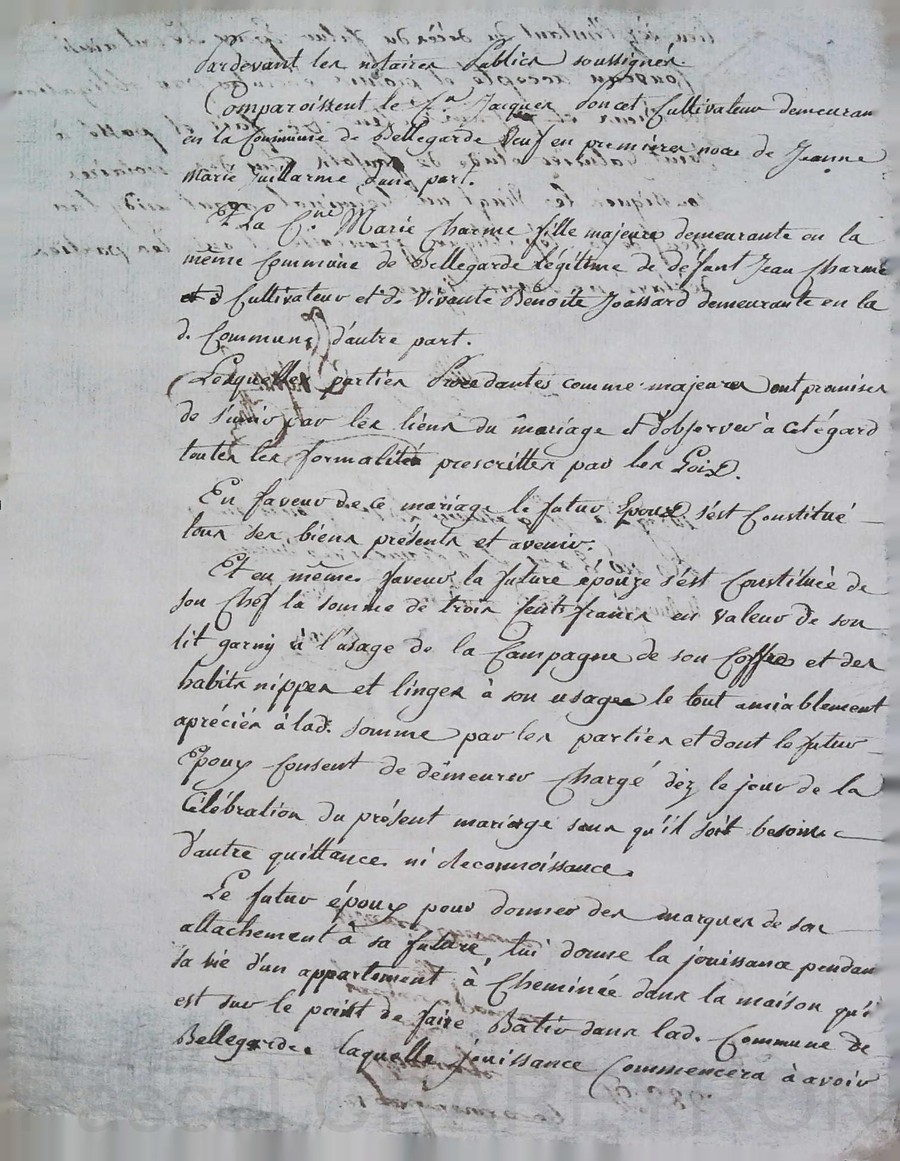 Pardevant les notaires Publics soussignés
Comparoissent le C.en Jacques Poncet Cultivateur demeuran
en la Commune de Bellegarde Veuf en premiere noce de Jeanne
Marie Juillarme d'une part.
Et La C.ne Marie Charme fille majeure demeurante en la
même Commune de Bellegarde légitime de défunt Jean Charme
Cultivateur et de Vivante Benoite Joassard demeurante en la
d. Commune d'autre part.
Lesquelles parties Procédantes comme majeures ont promises
de s'unir par les liens du mariage et d'observer à cet égard
toutes les formalités prescrittes par les Loix.
En faveur de ce mariage le futur Epoux s'est Constitué
tous ses biens présents et avenir.
Et en même faveur la future épouze s'est Constituée de
son Chef la somme de trois Cents francs en valeur de son
lit garny à l'usage de la Campagne de son Coffre et des
habits nippes et linges à son usage le tout amiablement
apréciés à lad. somme par les parties et dont le futur
Epoux Consent de demeurer Chargé dèz le jour de la
Célébration du présent mariage sans qu'il soit besoin
d'autre quittance ni reconnoissance.
Le futur époux pour donner des marques de son
attachement à sa future, lui donne la jouissance pendan
sa vie d'un appartement à Cheminée dans la maison qu'i
est sur le point de faire Batir dans lad. Commune de
Bellegarde. laquelle jouissance Commencera à avoir